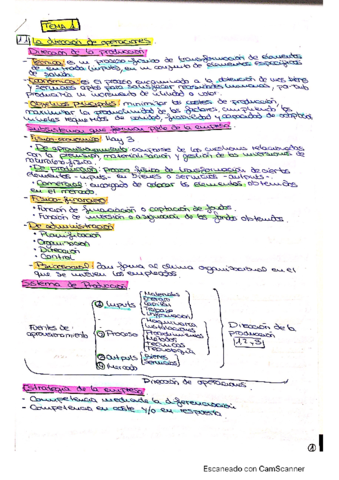 TEMA 1
1.1 La dirección de operaciones
Dirección de la producción
- Técnica: es un proceso físico de transformación de elementos
de entrada (inputs), en un conjunto de elementos específicos
de salida.
- Económica: es el proceso encaminado a la obtención de unos bienes
y servicios aptos para satisfacer necesidades humanas, por tanto
producirá un incremento de utilidad o valor.
- Objetivos Principales: minimizar los costes de producción,
maximizar la productividad de los factores, cumpliendo los
niveles requeridos de calidad, fiabilidad y capacidad de adaptación
Subsistemas que forman parte de la empresa
- Físico-económico: Hay 3
- De aprovisionamiento: compuesto de las cuestiones relacionadas
con la previsión, materialización y gestión de las inversiones de
naturaleza física.
- De producción: proceso físico de transformación de ciertos
elementos - inputs - en bienes o servicios - outputs -.
- Comercial: encargado de colocar los elementos obtenidos
en el mercado.
- Físico-financiero
- Función de financiación o captación de fondos.
- Función de inversión o asignación de los fondos obtenidos.
- De administración
• Planificación
• Organización
• Dirección
• Control
- Psicosocial: Dan forma al clima organizacional en el
que se mueven los empleados
Sistema de Producción
Fuentes de aprovisionamiento
① Inputs
Materiales
Energía
Capital
Trabajo
Información
② Proceso
Maquinaria
Instalaciones
Procedimientos
Métodos
Técnicas
Tecnología
③ Outputs
Bienes
Servicios
④ Mercado
Dirección de la
producción
Dirección de operaciones
Estrategia de la empresa
- Competencia mediante la diferenciación
- Competencia en coste y/o en respuesta
①
Escaneado con CamScanner